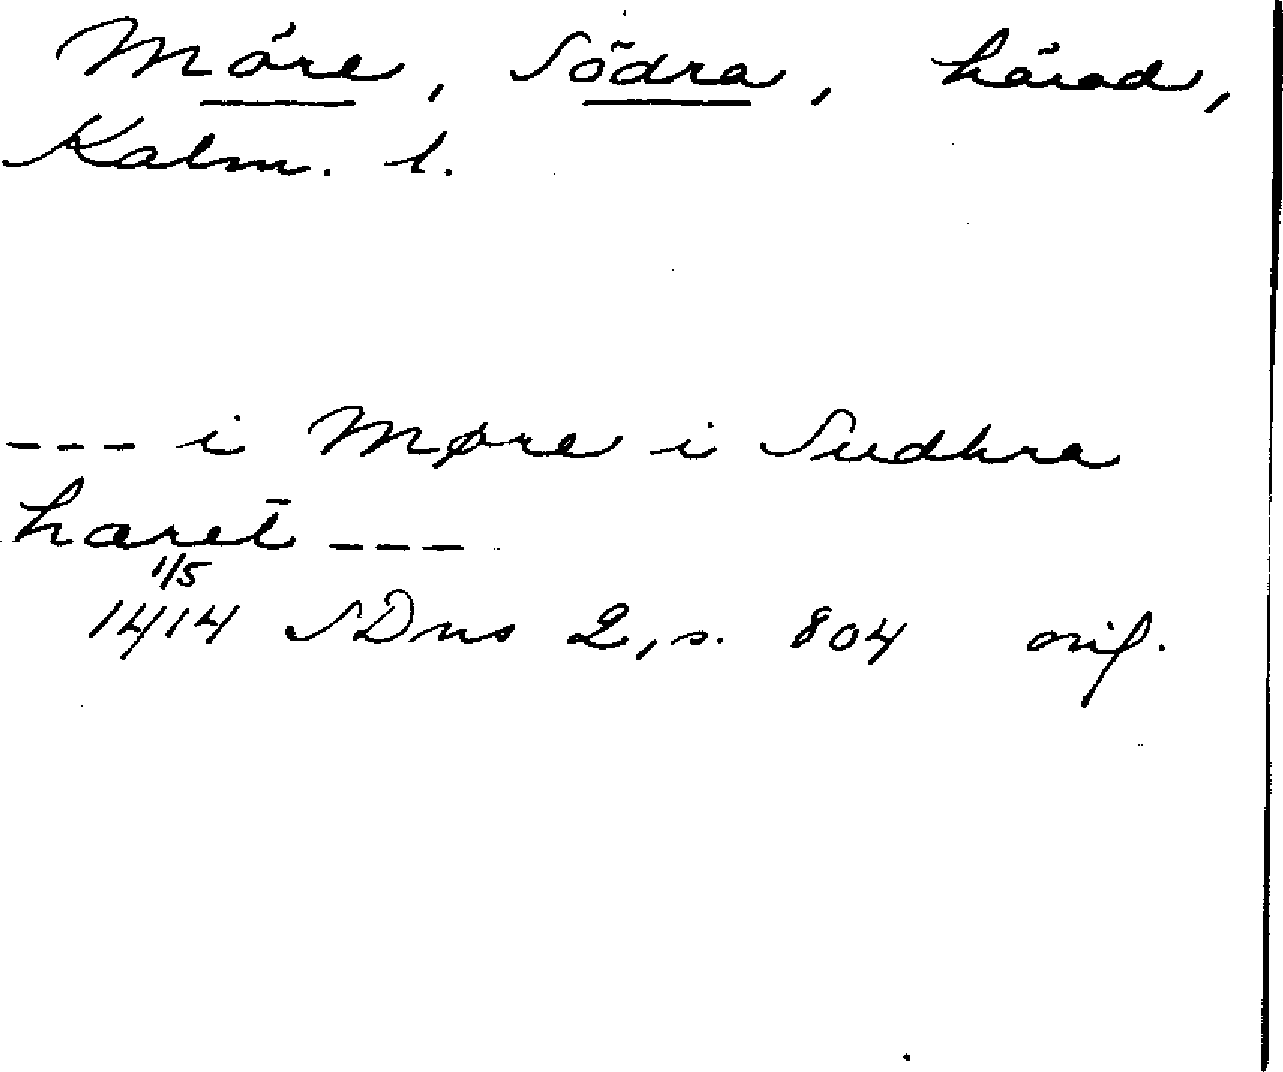 Möre, Södra, härad,
Kalm. l.
--- i Møre i Sudhra
haret̄ ---
1/5
1414 SDns 2, s. 804 orig.